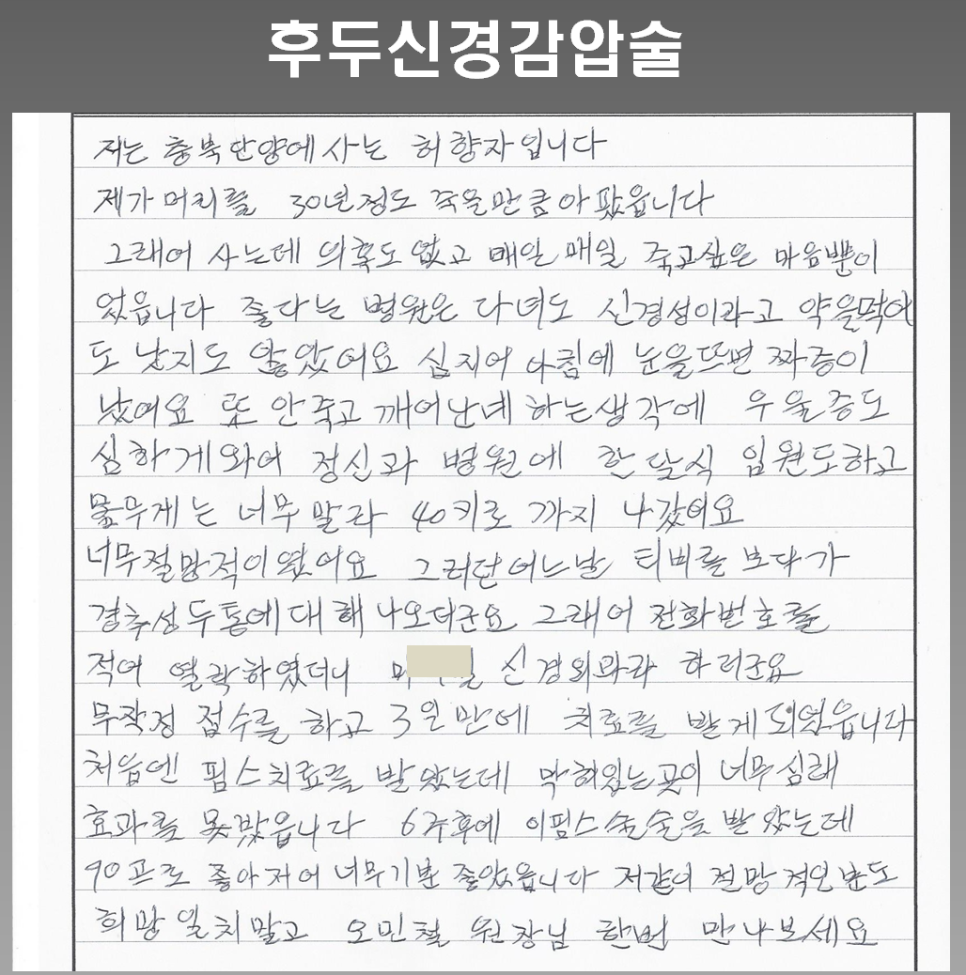 후두신경감압술
저는 충북단양에 사는 허향자입니다
제가 머리를 30년정도 죽을만큼아팠읍니다
그래어 사는데 의혹도 없고 매일매일 죽고싶은 마음뿐이
었읍니다 좋다는 병원은 다녀도 신경성이라고 약을먹어
도 낫지도 않았어요 심지어 아침에 눈을뜨면 짜증이
났어요 또 안죽고 깨어난네 하는생각에 우울증도
심하게와어 정신과 병원에 한달식 입원도하고
몸무게는 너무말라 40키로 까지 나갔어요
너무절망적이였어요 그러던어느날 티비를 보다가
경추성두통에대해나오더군요 그래어 전화번호를
적어 열락하였더니 신경외과라 하더군요
무작정 접수를 하고 3일만에 치료를 받게되였읍니다
처음엔 핌스치료를 받았는데 막혀있는곳이 너무심래
효과를 못봤읍니다 6주후에 이핌스술술을 받았는데
90프로 좋아저어 너무기분 좋았읍니다 저같이 절망적인분도
희망잃치말고 오민철 원장님 한번 만나보세요